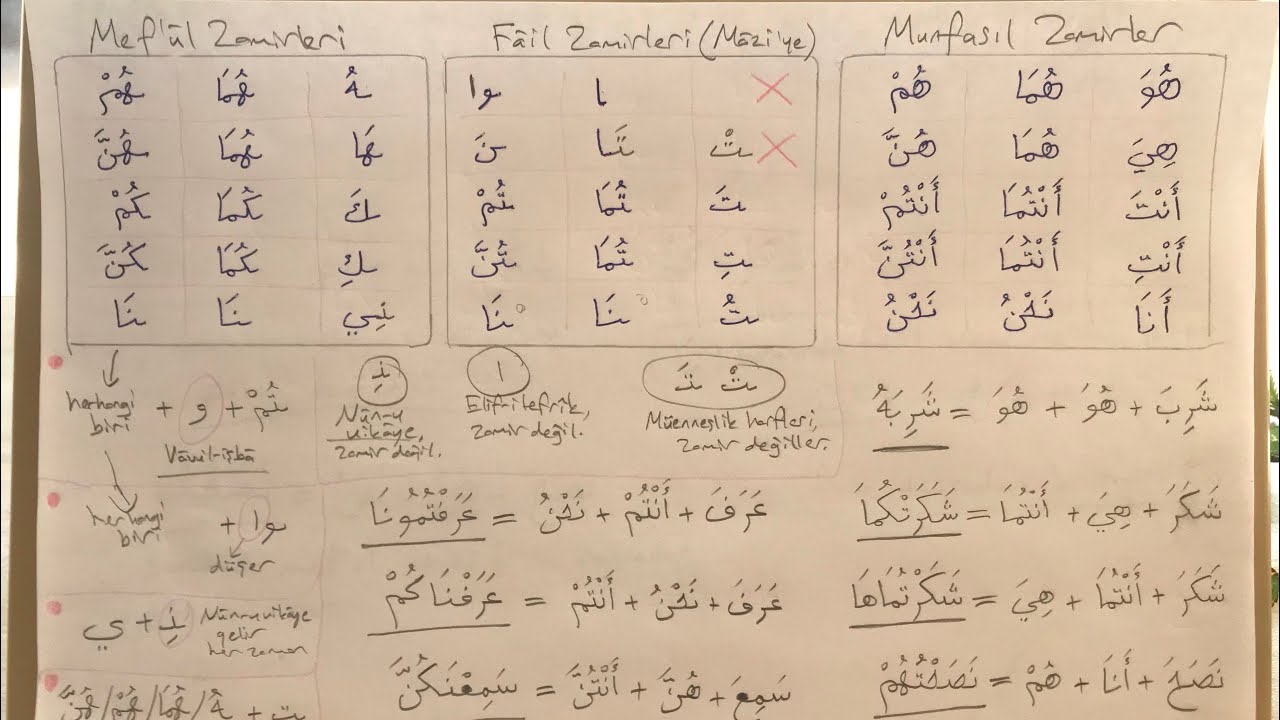 Mef'ûl Zamirleri
ـهُ ـهُمَا ـهُمْ
ـهَا ـهُمَا ـهُنَّ
ـكَ ـكُمَا ـكُمْ
ـكِ ـكُمَا ـكُنَّ
ـنِي ـنَا ـنَا
Fâil Zamirleri (Mâzi'ye)
ـا ـوا
ـتْ ـتَا ـنَ
ـتَ ـتُمَا ـتُمْ
ـتِ ـتُمَا ـتُنَّ
ـتُ ـنَا ـنَا
Munfasıl Zamirler
هُوَ هُمَا هُمْ
هِيَ هُمَا هُنَّ
أَنْتَ أَنْتُمَا أَنْتُمْ
أَنْتِ أَنْتُمَا أَنْتُنَّ
أَنَا نَحْنُ نَحْنُ
ـتُمْ + و + herhangi biri
Vâvul-işbâ
نِ
Nûn-u
vikâye,
zamir değil.
ا
Elif-i tefrik,
zamir değil.
ـتْ ـتَ
Müenneslik harfleri,
zamir değiller.
شَرِبَ + هُوَ + هُوَ = شَرِبَهُ
ـوا + herhangi biri
düşer
عَرَفَ + أَنْتُمْ + نَحْنُ = عَرَفْتُمُونَا
شَكَرَ + هِيَ + أَنْتُمَا = شَكَرَتْكُمَا
ي + نِ Nûn-u vikâye
gelir
her zaman
عَرَفَ + نَحْنُ + أَنْتُمْ = عَرَفْنَاكُمْ
شَكَرَ + أَنْتُمَا + هِيَ = شَكَرْتُمَاهَا
ـهُ / ـهُمَا / ـهُمْ / ـهُنَّ
سَمِعَ + هُنَّ + أَنْتُنَّ = سَمِعْنَكُنَّ
نَصَحَ + أَنَا + هُمْ = نَصَحْتُهُمْ